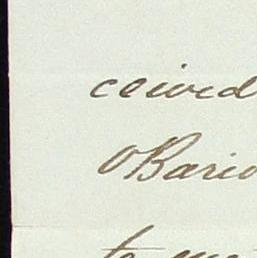 ceived
OBario
to